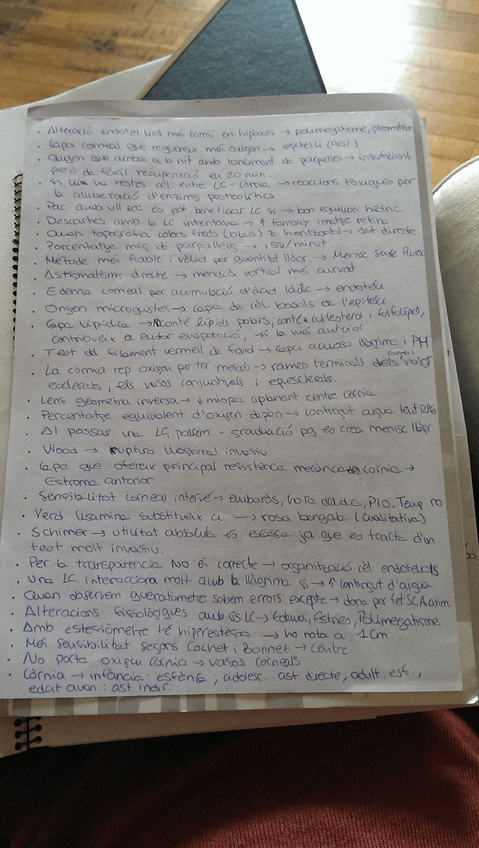 · Alteració endotelial més comú en hipòxia → polimegatisme, pleomorfisme
· Capa corneal que requereix més oxigen → epiteli (90%)
· Oxigen que arriba a la nit amb tancament de parpelles → insuficient
però de fàcil recuperació en 20 min.
· Si hi ha restes cel. entre LC-còrnia → reaccions tòxiques per
la alliberació d'enzims proteolítics
· Pac amb ull sec es pot beneficiar LC si → bon equilibri hídric
· Descartes amb la LC intentava → ↑ tamany imatge retina
· Quan topografia colors freds (blaus) z horitzontal → Ast directe
· Porcentatge mig de parpelleig → 15v/minut
· Mètode més fiable i vàlid per quantitat llàgr → Menisc sense fluor
· Astigmatisme directe → meridià vertical més curvat
· Edema corneal per acumulació d'àcid làctic → endoteli
· Origen microquistes → capa de cèl. basals de l'epiteli
· Capa lipídica → NO conté lípids polars, conté colesterol i fosfolípids,
contribueix a evitar evaporació, és la més anterior
· Test del filament vermell de fenol → capa aquosa llàgrima i PH
· La còrnia rep oxigen per fer metab → rames terminals dels vasos
esclerals, els vasos conjuntivals i episclerals.
· Lens geometria inversa → ↓ miopia aplanant centre còrnia
· Percentatge equivalent d'oxigen depèn → contingut aigua
· Al possar una LC, possem - graduació pq es crea menisc llàgr.
· Wood → ruptura llagrimal invasiu
· Capa que ofereix principal resistència mecànica còrnia →
Estroma anterior
· Sensibilitat corneal intervé → embaràs, hora del dia, PIO. Temp no
· Verd lisamina substitueix a → rosa bengala (qualitativa)
· Schimer → utilitat absoluta és escassa ja que es tracta d'un
test molt invasiu.
· Per la transparència NO és correcte → organització cèl. endotelials
· Una LC interacciona molt amb la llàgrima si → ↑ contingut d'aigua
· Quan observem queratòmetre sabem errors excepte → dona per fet SCA asim.
· Alteracions fisiològiques amb ús LC → Edema, Estries, Polimegatisme
· Amb estesiòmetre té hiperestèsia → ho nota a 1cm.
· Més sensibilitat segons Cochet i Bonnet → centre
· No porta oxigen còrnia → vasos corneals
· Còrnia → infància: esfèrica; adolesc. ast directe, adult. esf.,
edat avan: ast indir.